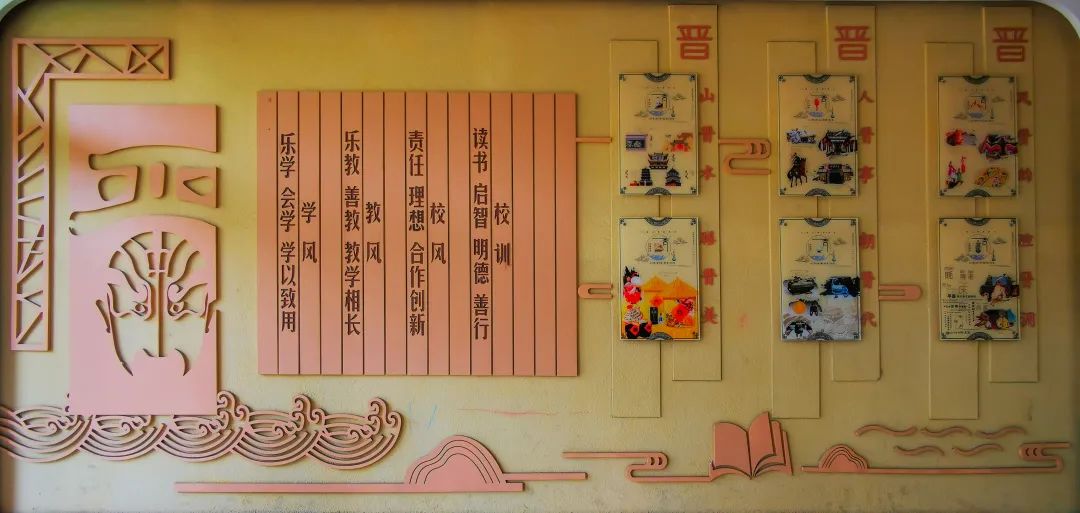 晋
晋
晋
人晋事
朝晋代
山晋水
晋美
校训
读书 启智 明德 善行
校风
责任 理想 合作创新
教风
乐教 善教 教学相长
学风
乐学 会学 学以致用